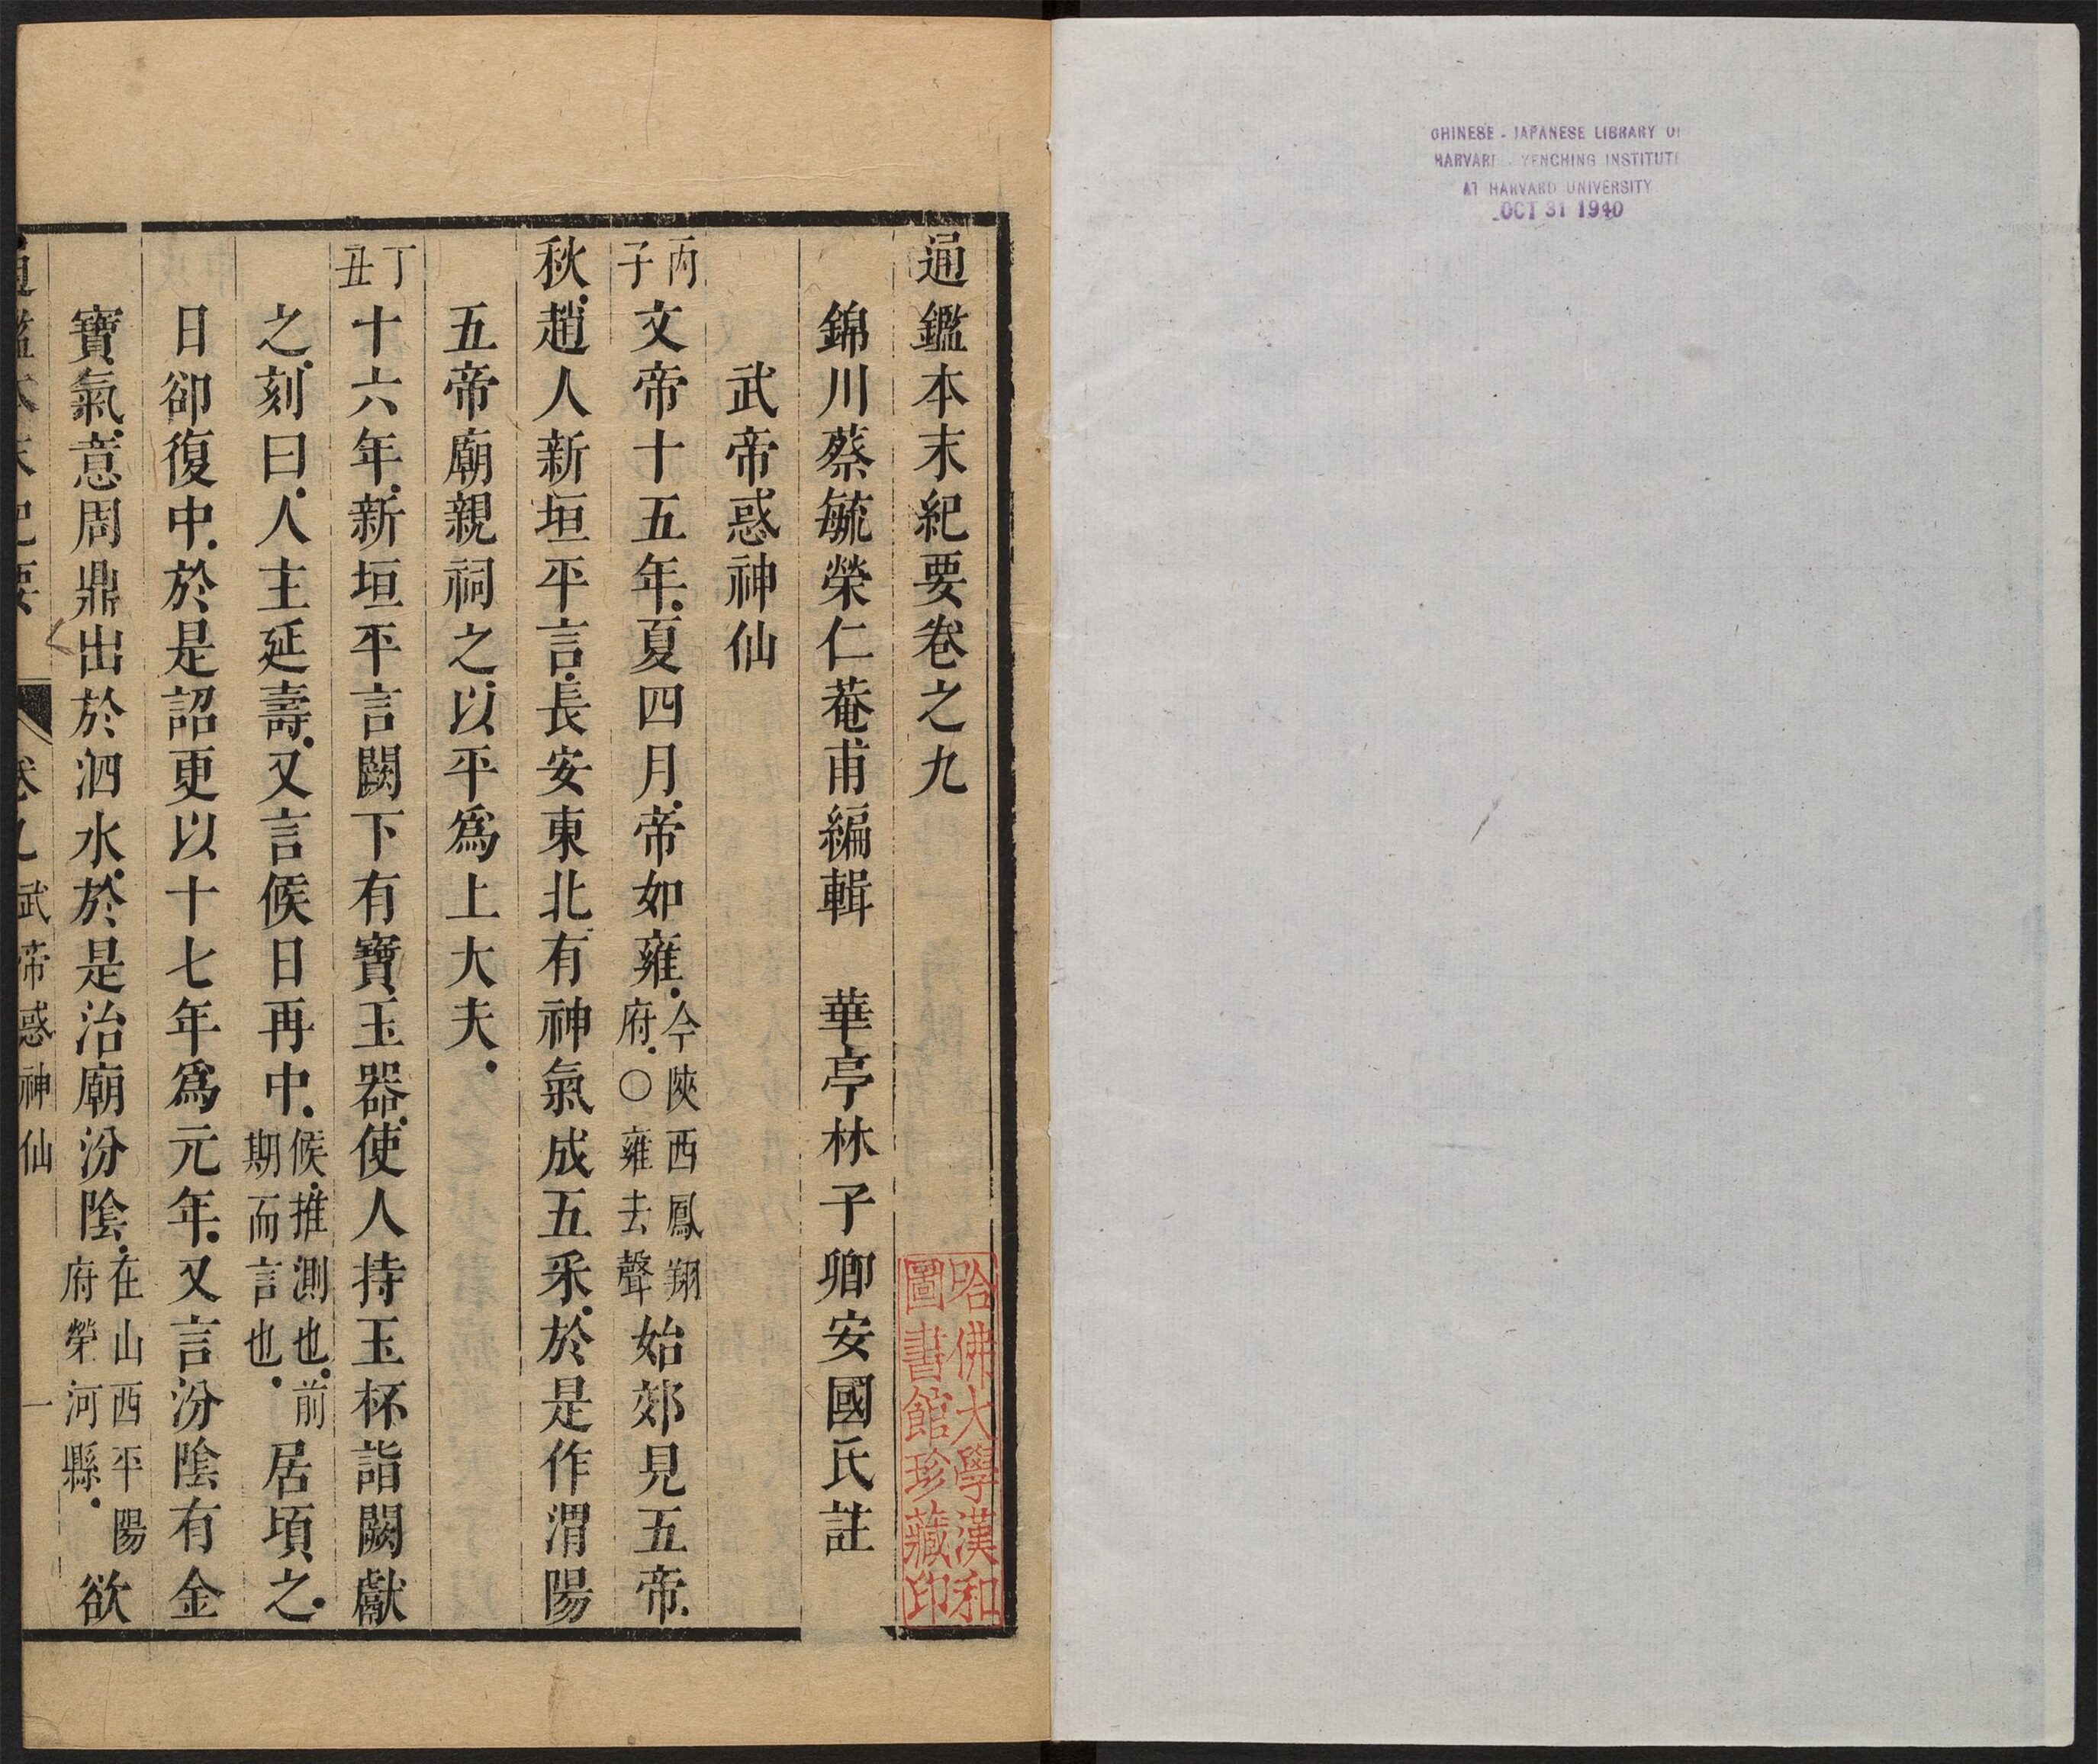 CHINESE - JAPANESE LIBRARY OF
HARVARD - YENCHING INSTITUTE
AT HARVARD UNIVERSITY
OCT 31 1940
通鑑本末紀要卷之九
哈佛大學漢和
圖書館珍藏印
錦川蔡毓榮仁菴甫編輯　華亭林子卿安國氏註
武帝惑神仙
丙子文帝十五年.夏四月.帝如雍.今陜西鳳翔府.○雍去聲始郊見五帝.
秋.趙人新垣平言.長安東北有神氣成五采.於是作渭陽
五帝廟親祠之.以平爲上大夫.
丁丑十六年.新垣平言闕下有寶玉器.使人持玉杯詣闕獻
之.刻曰.人主延壽.又言候日再中.候.推測也.前期而言也.居頃之.
日卻復中.於是詔更以十七年爲元年.又言汾陰有金
寶氣.意周鼎出於泗水.於是治廟汾陰.在山西平陽府榮河縣.欲
通鑑本末紀要　卷九　武帝惑神仙　一